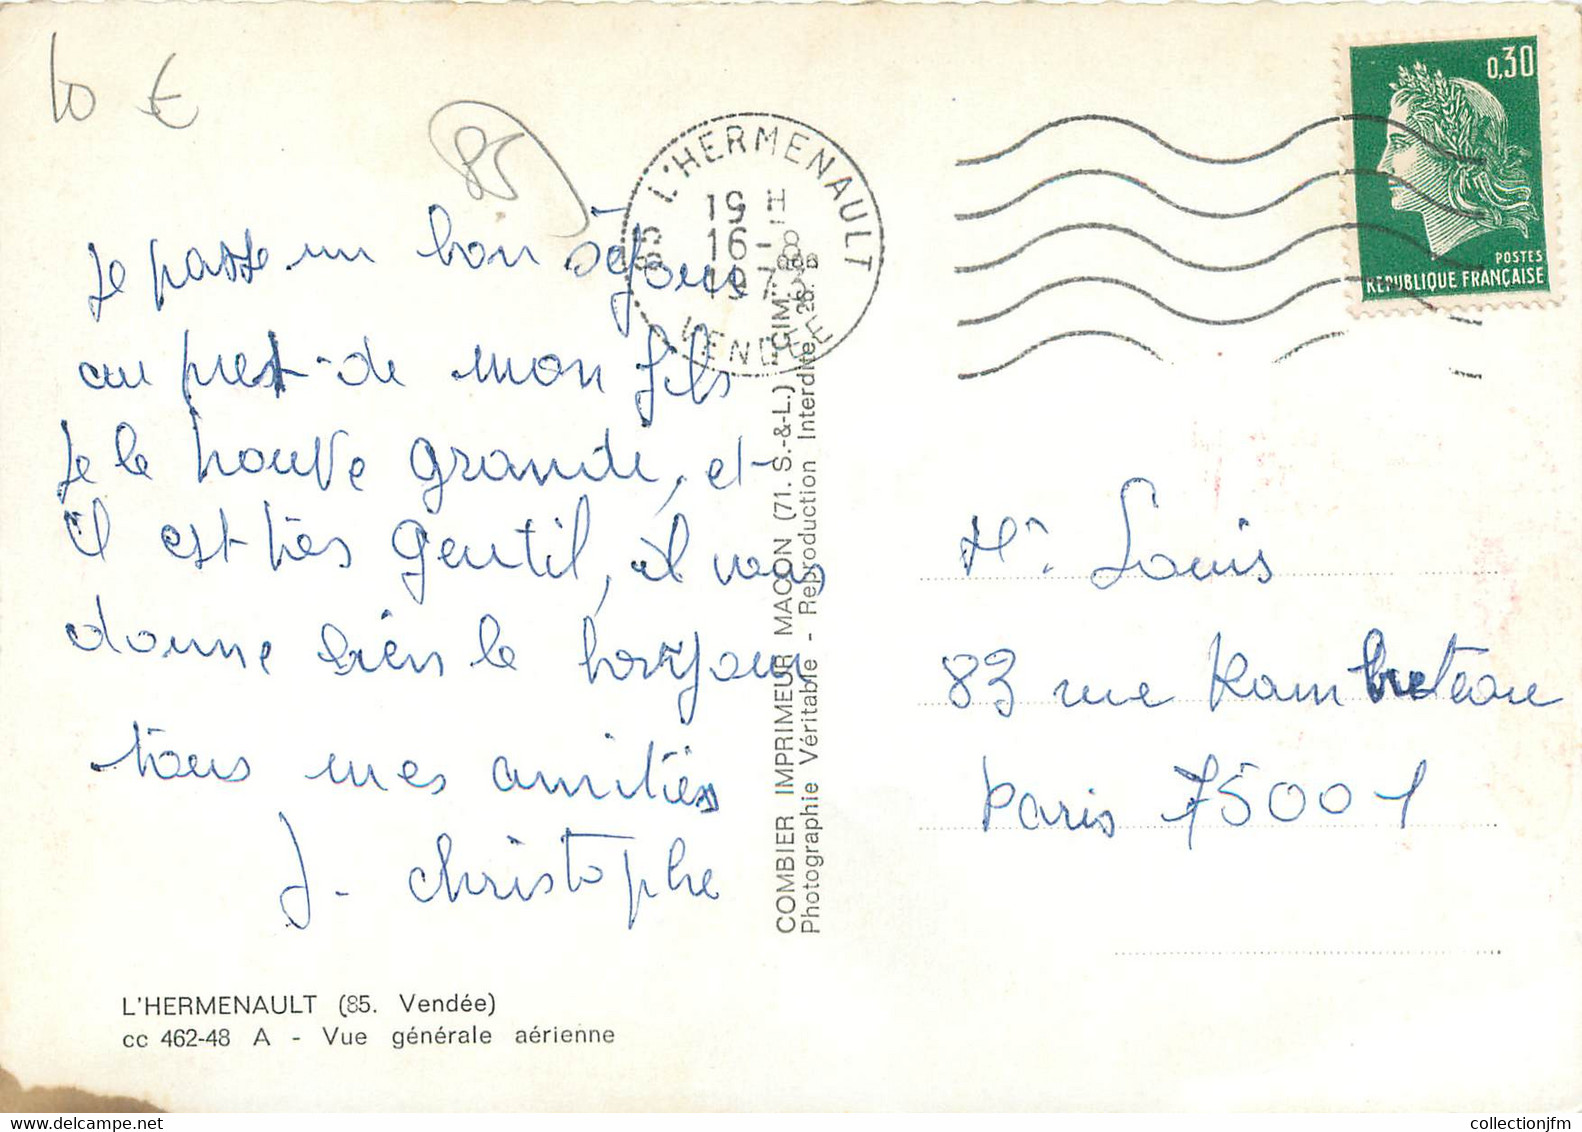 10 €
85
Je passe un bon séjour
au prest-de mon fils
Je le trouve grandi, et
il est très gentil, il vous
donne bien le bonjour
tous mes amitiés
J. Christophe
L'HERMENAULT (85. Vendée)
cc 462-48 A - Vue générale aérienne
85 L'HERMENAULT
19 H
16-8
197
VENDEE
COMBIER IMPRIMEUR MACON (71. S.-&-L.) "CIM"
Photographie Véritable - Reproduction Interdite
0,30
POSTES
REPUBLIQUE FRANÇAISE
Mr. Louis
83 rue Rambuteau
Paris 75001
collectionjfm